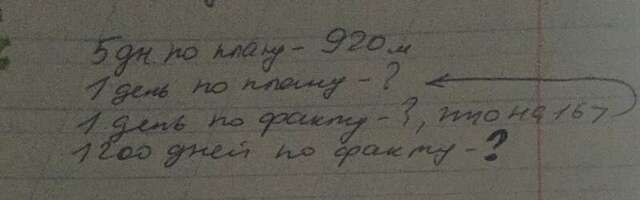 5 дн. по плану - 920 м
1 день по плану - ?
1 день по факту - ?, что на 16 >
1200 дней по факту - ?